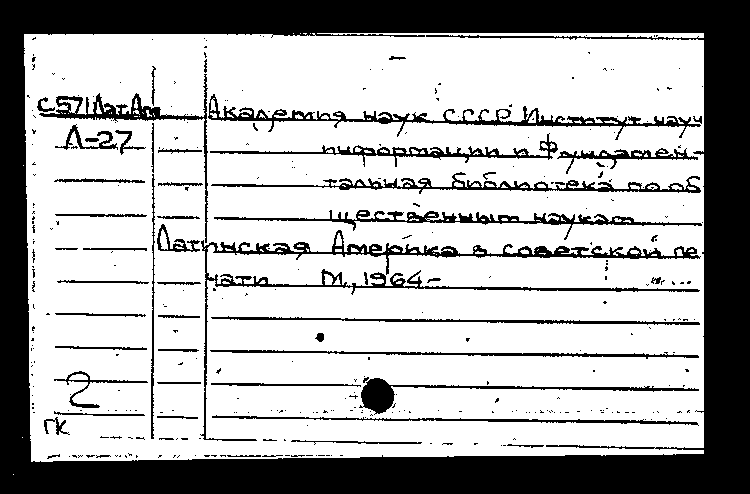 С571Лат.Ам Академия наук СССР. Институт науч
Л-27
информации и Фундамен-
тальная библиотека по об
щественным наукам
Латинская Америка в советской пе
чати М., 1964-
2
ГК